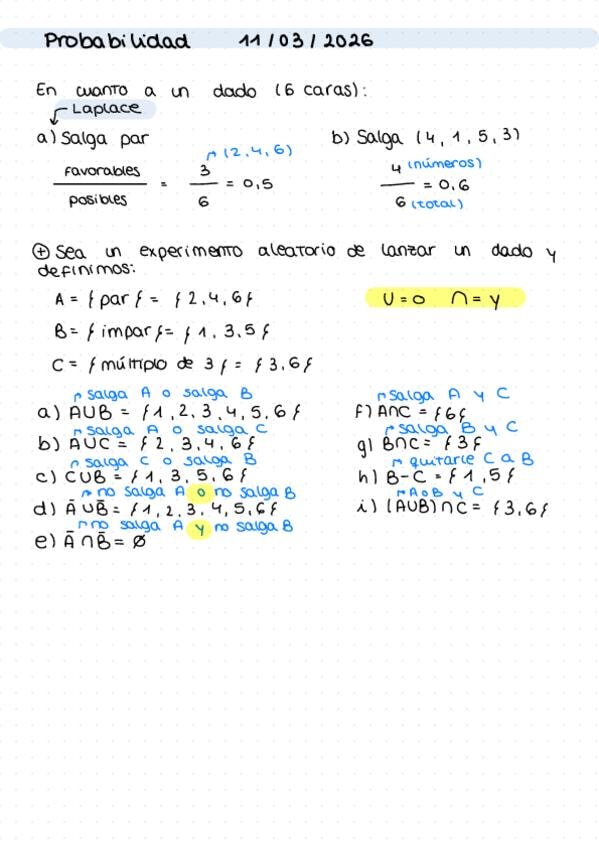 Probabilidad 11/03/2026
En cuanto a un dado (6 caras):
Laplace
a) Salga par
(2,4,6)
favorables / posibles = 3/6 = 0,5
b) Salga (4, 1, 5, 3)
4 (números) / 6 (total) = 0,6
⊕ Sea un experimento aleatorio de lanzar un dado y
definimos:
A = { par { = { 2, 4, 6 {
U = o ∩ = y
B = { impar { = { 1, 3, 5 {
C = { múltiplo de 3 { = { 3, 6 {
salga A o salga B
a) A∪B = { 1, 2, 3, 4, 5, 6 {
salga A o salga C
b) A∪C = { 2, 3, 4, 6 {
salga C o salga B
c) C∪B = { 1, 3, 5, 6 {
no salga A o no salga B
d) Ā∪B̄ = { 1, 2, 3, 4, 5, 6 {
no salga A y no salga B
e) Ā∩B̄ = Ø
salga A y C
f) A∩C = { 6 {
salga B y C
g) B∩C = { 3 {
quitarle C a B
h) B-C = { 1, 5 {
A o B y C
i) (A∪B)∩C = { 3, 6 {